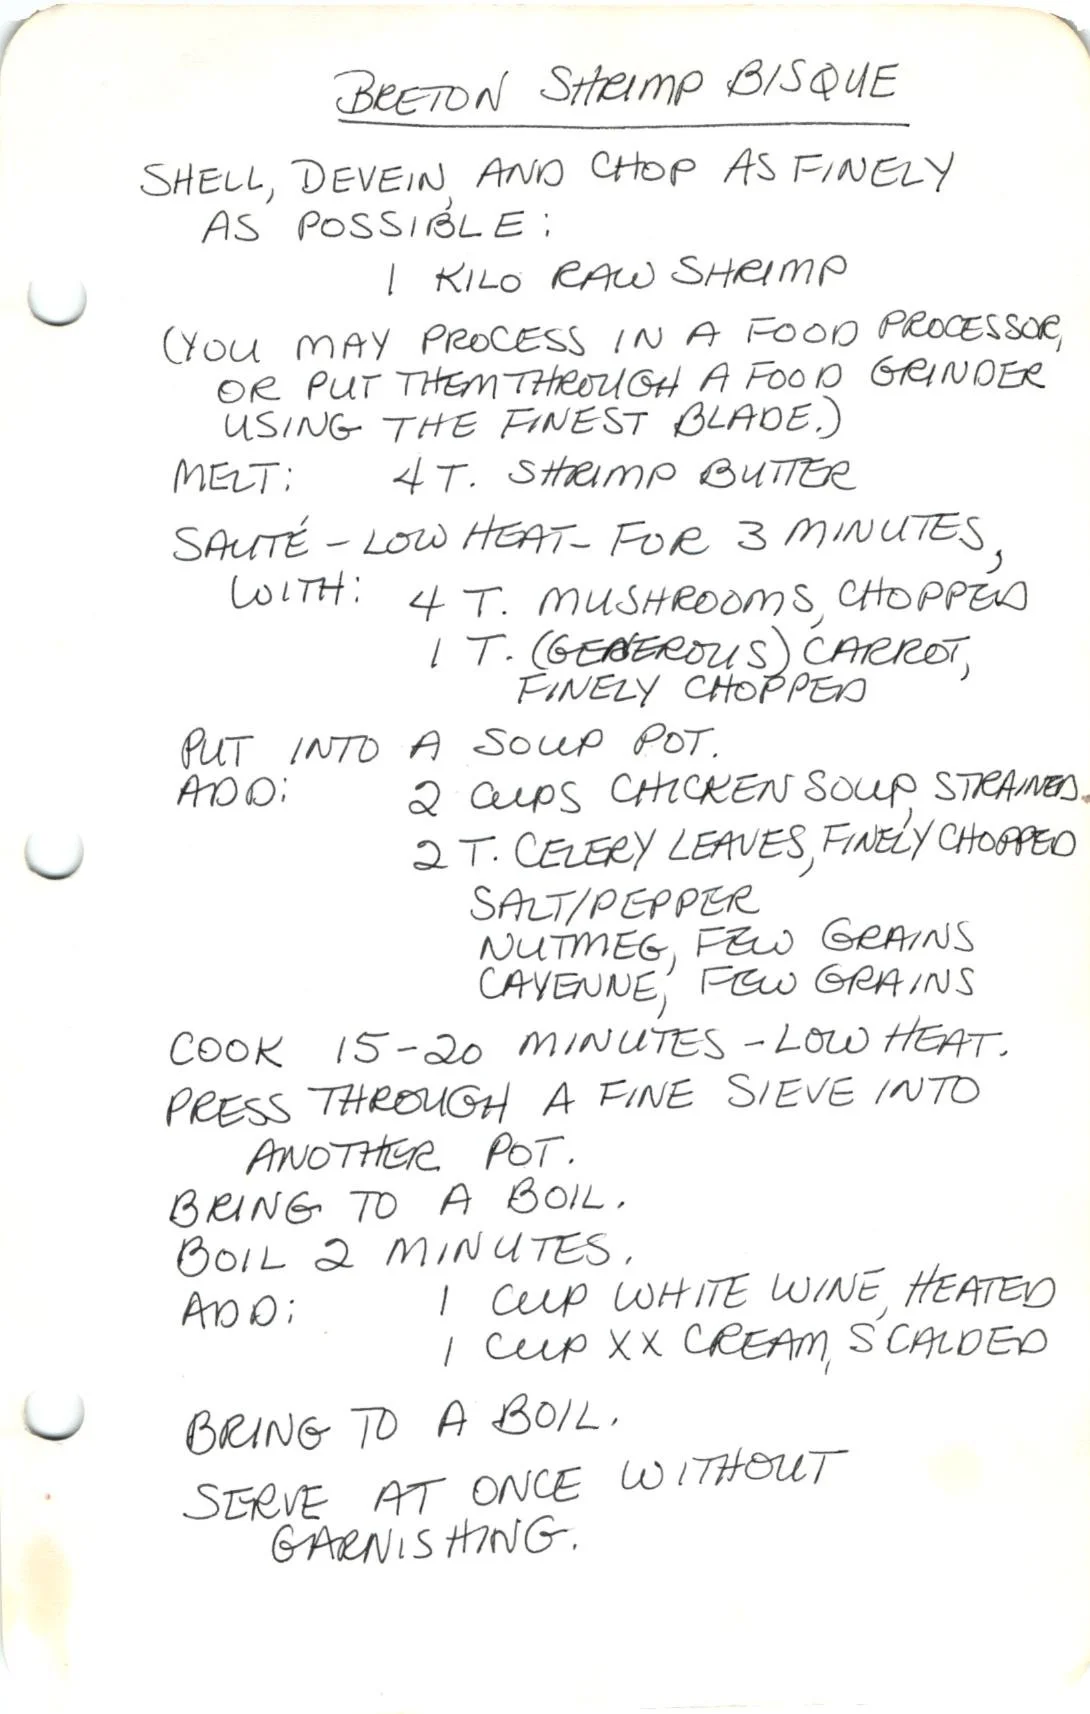 BRETON SHRIMP BISQUE
SHELL, DEVEIN, AND CHOP AS FINELY
AS POSSIBLE:
1 KILO RAW SHRIMP
(YOU MAY PROCESS IN A FOOD PROCESSOR,
OR PUT THEM THROUGH A FOOD GRINDER
USING THE FINEST BLADE.)
MELT: 4 T. SHRIMP BUTTER
SAUTÉ - LOW HEAT - FOR 3 MINUTES,
WITH: 4 T. MUSHROOMS, CHOPPED
1 T. (GENEROUS) CARROT,
FINELY CHOPPED
PUT INTO A SOUP POT.
ADD: 2 CUPS CHICKEN SOUP, STRAINED.
2 T. CELERY LEAVES, FINELY CHOPPED
SALT/PEPPER
NUTMEG, FEW GRAINS
CAYENNE, FEW GRAINS
COOK 15-20 MINUTES - LOW HEAT.
PRESS THROUGH A FINE SIEVE INTO
ANOTHER POT.
BRING TO A BOIL.
BOIL 2 MINUTES.
ADD: 1 CUP WHITE WINE, HEATED
1 CUP XX CREAM, SCALDED
BRING TO A BOIL.
SERVE AT ONCE WITHOUT
GARNISHING.